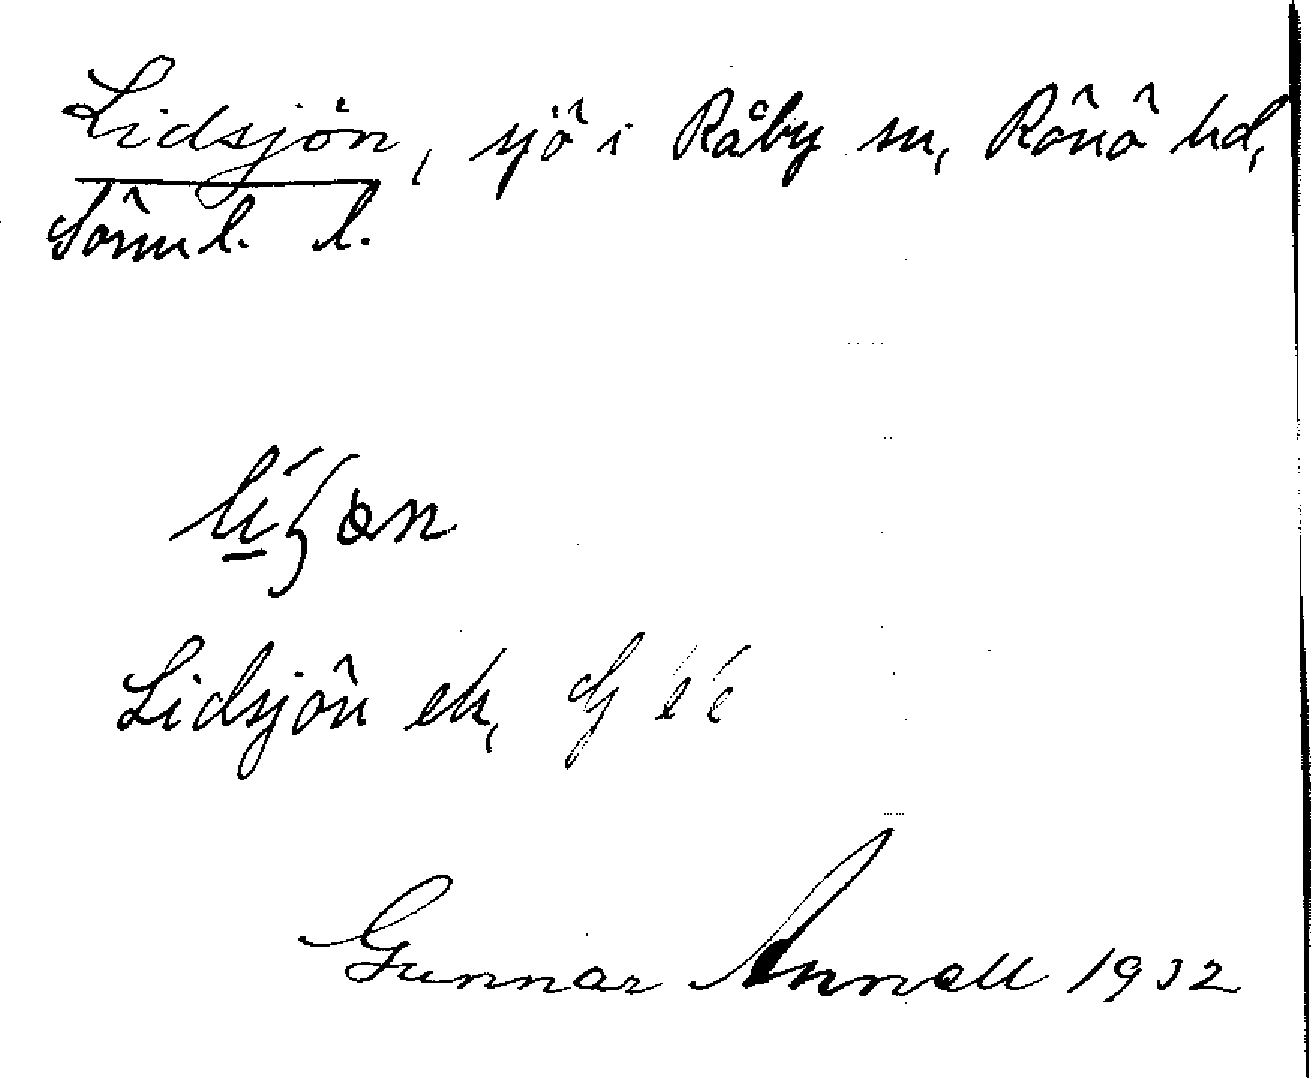 Lidsjön, sjö i Råby sn, Rönö hd,
Söml. l.
Lidsjön ek,
Gunnar Annell 1932